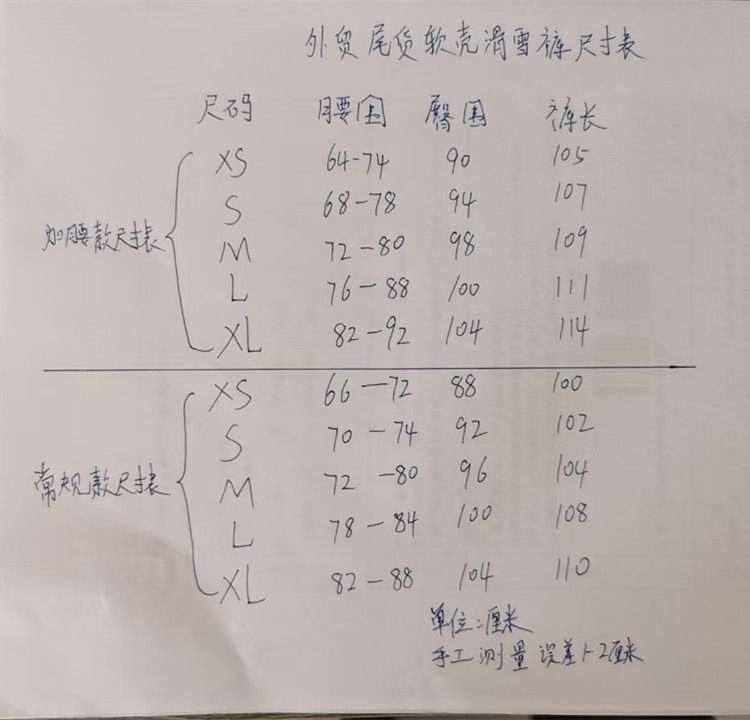 外贸尾货软壳滑雪裤尺寸表
尺码 腰围 臀围 裤长
XS 64-74 90 105
S 68-78 94 107
加腰款尺寸表 M 72-80 98 109
L 76-88 100 111
XL 82-92 104 114
XS 66-72 88 100
S 70-74 92 102
常规款尺寸表 M 72-80 96 104
L 78-84 100 108
XL 82-88 104 110
单位:厘米
手工测量误差1-2厘米